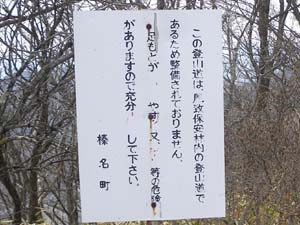 この登山道は、県政保安林内の登山道で
あるため整備されておりません。
足もとが やす 又、 等の危険
がありますので充分 して下さい。
榛名町